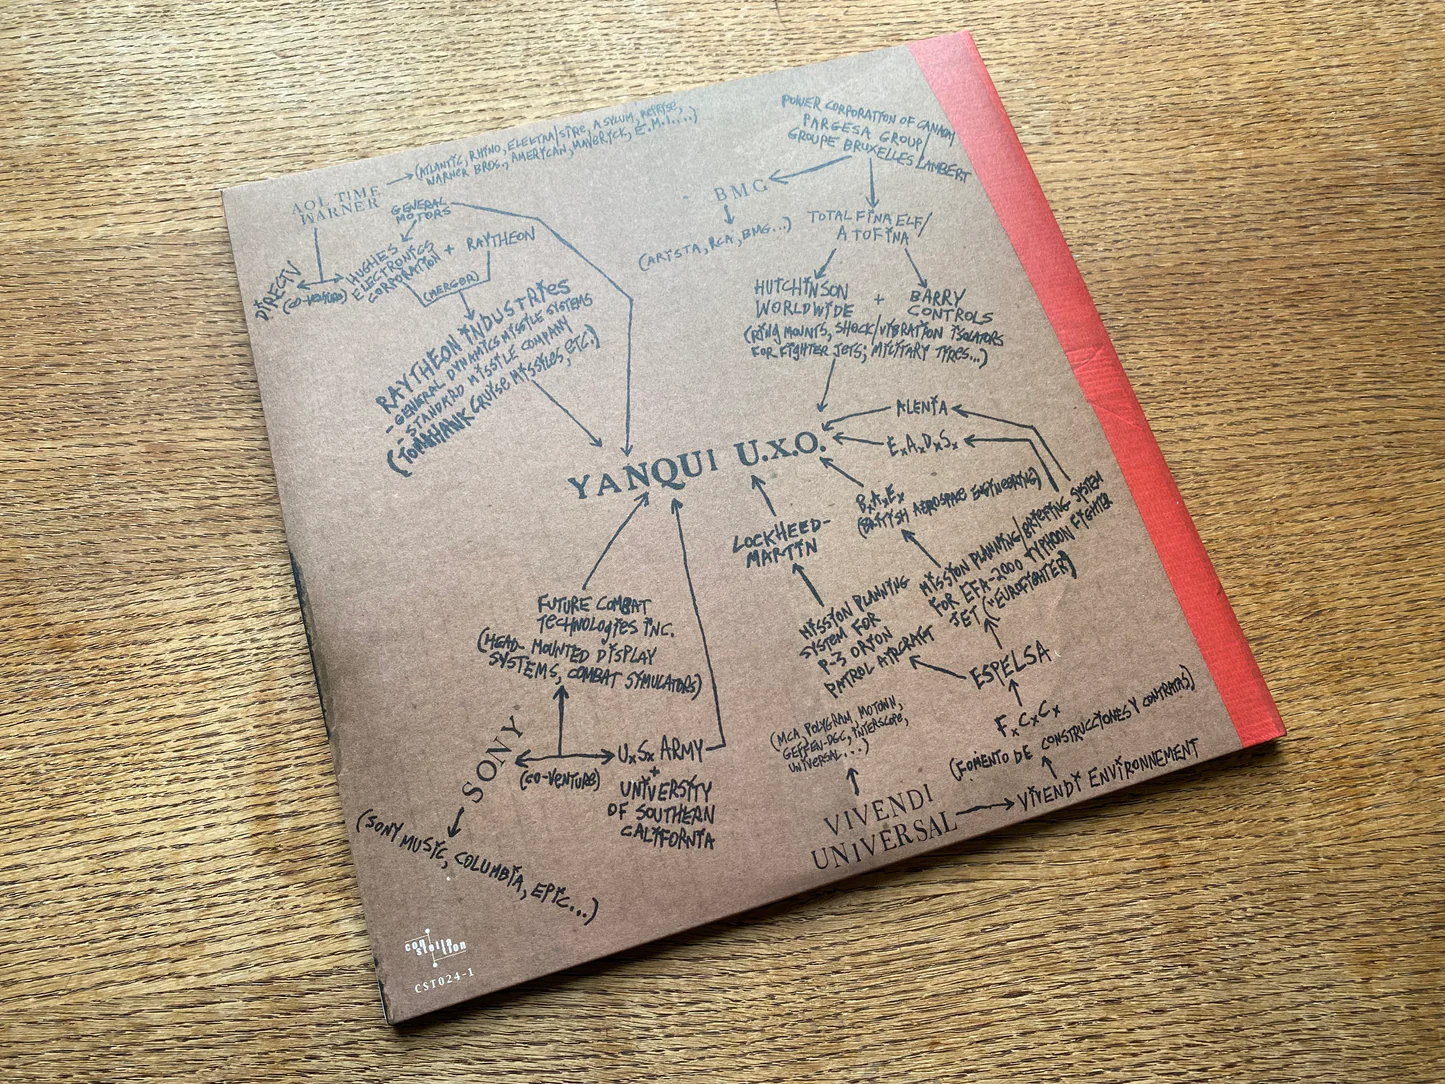 (ATLANTIC, RHINO, ELEKTRA/SIRE, ASYLUM, REPRISE,
WARNER BROS., AMERICAN, MAVERICK, E.M.I....)
AOL TIME
WARNER
GENERAL
MOTORS
HUGHES
ELECTRONICS
CORPORATION
+ RAYTHEON
DIRECTV
(CO-VENTURE)
(MERGER)
RAYTHEON INDUSTRIES
- GENERAL DYNAMICS MISSILE SYSTEMS
- STANDARD MISSILE COMPANY
(TOMAHAWK CRUISE MISSILES, ETC.)
POWER CORPORATION OF CANADA/
PARGESA GROUP/
GROUPE BRUXELLES LAMBERT
BMG
(ARISTA, RCA, BMG...)
TOTAL FINA ELF/
ATOFINA
HUTCHINSON
WORLDWIDE
+
BARRY
CONTROLS
(RING MOUNTS, SHOCK/VIBRATION ISOLATORS
FOR FIGHTER JETS; MILITARY TYRES...)
YANQUI U.X.O.
ALENIA
E×A×D×S×
B×A×E×
(BRITISH AEROSPACE ENGINEERING)
LOCKHEED-
MARTIN
MISSION PLANNING
SYSTEM FOR
P-3 ORION
PATROL AIRCRAFT
MISSION PLANNING/BRIEFING SYSTEM
FOR EFA-2000 TYPHOON FIGHTER
JET ("EUROFIGHTER)
ESPELSA
F×C×C×
(FOMENTO DE CONSTRUCCIONES Y CONTRATAS)
VIVENDI ENVIRONNEMENT
(MCA, POLYGRAM, MOTOWN,
GEFFEN-DGC, INTERSCOPE,
UNIVERSAL...)
VIVENDI
UNIVERSAL
FUTURE COMBAT
TECHNOLOGIES INC.
(HEAD-MOUNTED DISPLAY
SYSTEMS, COMBAT SYMULATORS)
SONY
(CO-VENTURE)
U×S× ARMY
+
UNIVERSITY
OF SOUTHERN
CALIFORNIA
(SONY MUSIC, COLUMBIA, EPIC...)
constellation
CST024-1